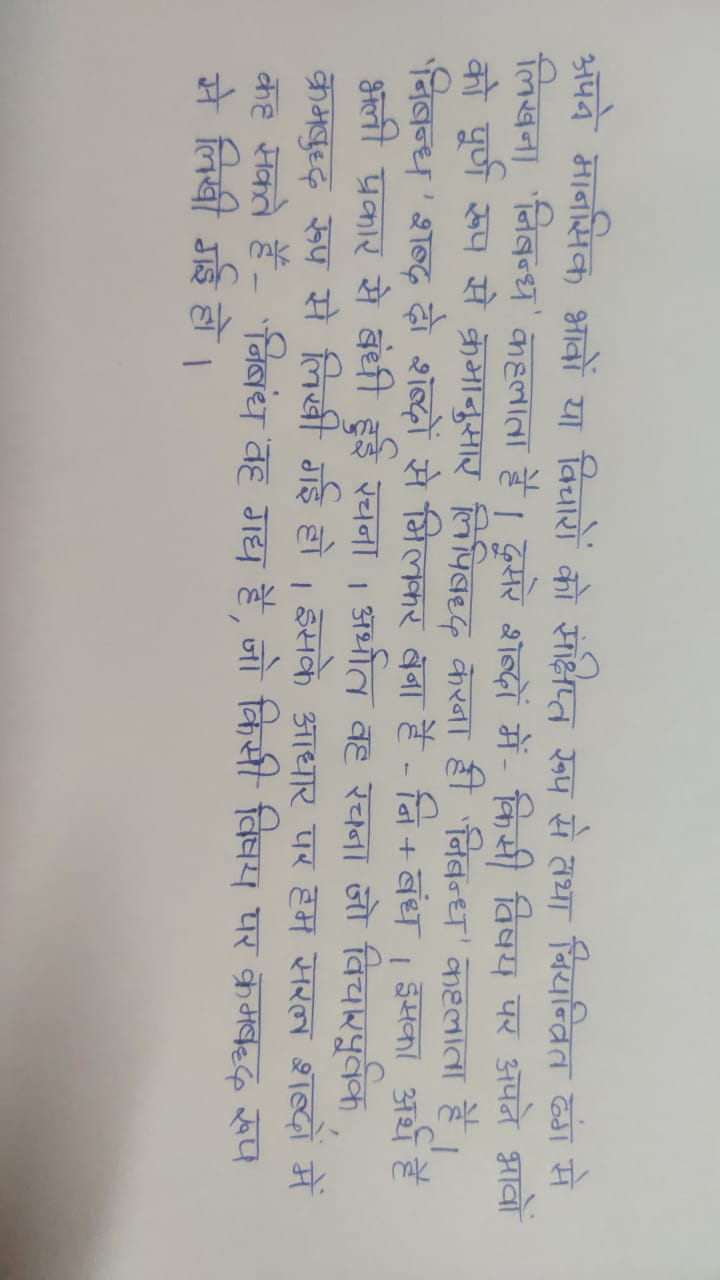 अपने मानसिक भावों या विचारों को संक्षिप्त रूप से तथा नियन्त्रित ढंग से
लिखना 'निबन्ध' कहलाता है । दूसरे शब्दों में - किसी विषय पर अपने भावों
को पूर्ण रूप से क्रमानुसार लिपिबध्द करना ही 'निबन्ध' कहलाता है ।
'निबन्ध' शब्द दो शब्दों से मिलकर बना है - नि + बंध । इसका अर्थ है
भली प्रकार से बंधी हुई रचना । अर्थात वह रचना जो विचारपूर्वक,
क्रमबुध्द रूप से लिखी गई हो । इसके आधार पर हम सरल शब्दों में
कह सकते हैं - 'निबंध' वह गध है, जो किसी विषय पर क्रमबध्द रूप
से लिखी गई हो ।